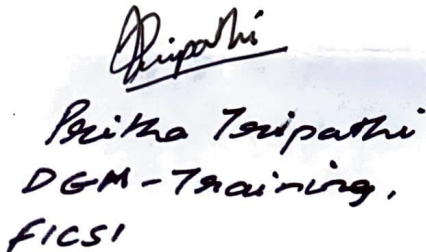 Tripathi
Pritha Tripathi
DGM-Training,
FICSI